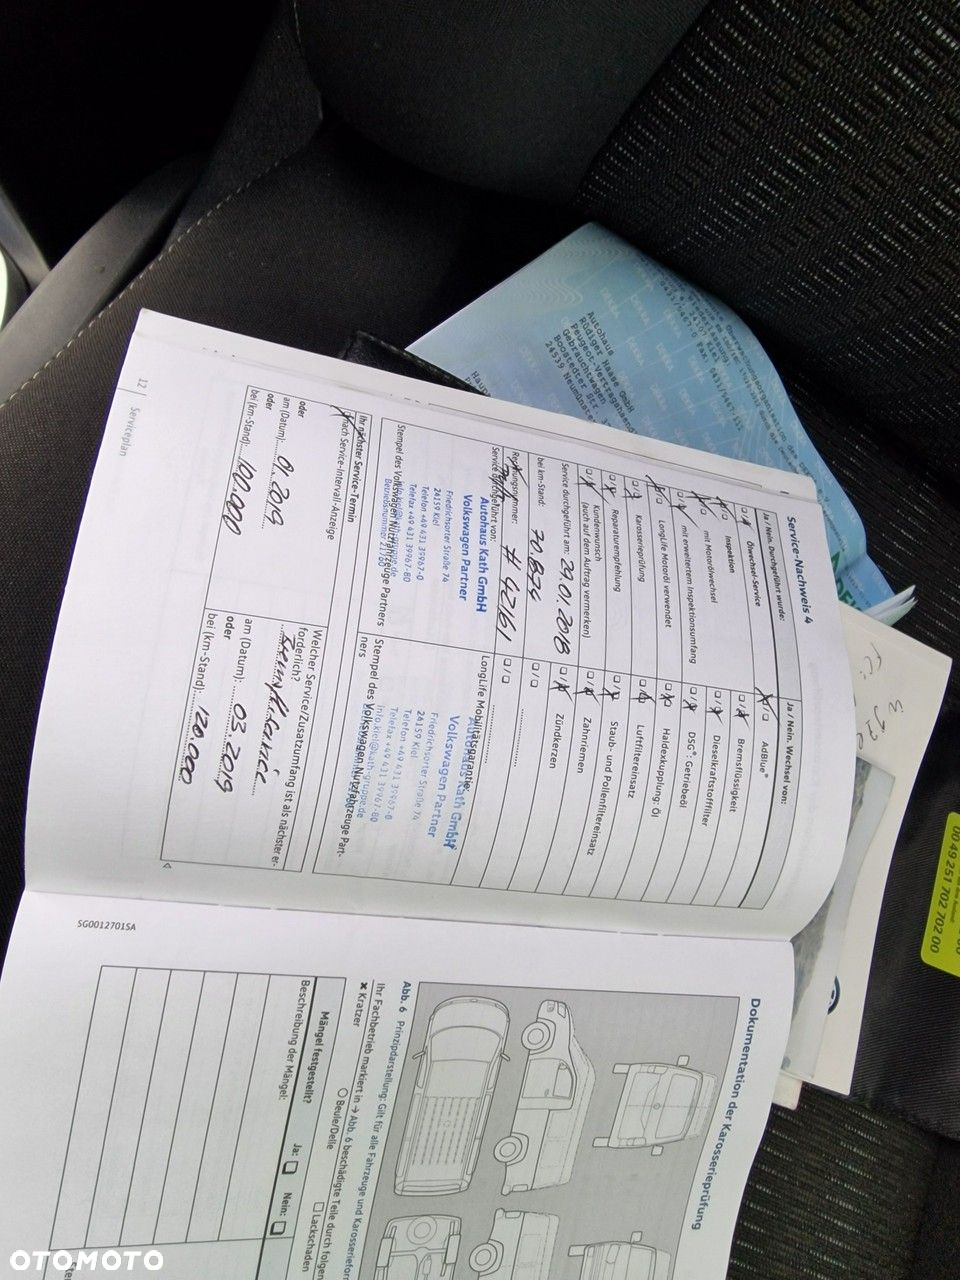 Service-Nachweis 4
Ja / Nein. Durchgeführt wurde:
Ölwechsel-Service
Inspektion
mit Motorölwechsel
mit erweitertem Inspektionsumfang
LongLife Motoröl verwendet
Karosserieprüfung
Reparaturempfehlung
Kundenwunsch
(auch auf dem Auftrag vermerken)
Service durchgeführt am: 29.01.2018
bei km-Stand:
Rechnungsnummer:
Service durchgeführt von:
Autohaus Kath GmbH
Volkswagen Partner
Friedrichsorter Straße 74
24159 Kiel
Telefon +49 431 39967-0
Telefax +49 431 39967-80
Stempel des Volkswagen Nutzfahrzeuge Partners
Ihr nächster Service-Termin
nach Service-Intervall-Anzeige
oder
am (Datum): 01.2019
oder
bei (km-Stand): 100.000
Ja / Nein. Wechsel von:
AdBlue®
Bremsflüssigkeit
Dieselkraftstofffilter
DSG®: Getriebeöl
Haldexkupplung: Öl
Luftfiltereinsatz
Staub- und Pollenfiltereinsatz
Zahnriemen
Zündkerzen
LongLife Mobilitätsgarantie:
Autohaus Kath GmbH
Volkswagen Partner
Friedrichsorter Straße 74
24159 Kiel
Telefon +49 431 39967-0
Telefax +49 431 39967-80
info.kiel@kath-gruppe.de
Stempel des Volkswagen Nutzfahrzeuge Part-
ners
Welcher Service/Zusatzumfang ist als nächster er-
forderlich?
am (Datum): 03.2019
oder
bei (km-Stand): 120.000
12 | Serviceplan
SG0012701SA
Dokumentation der Karosserieprüfung
Abb. 6 Prinzipdarstellung: Gilt für alle Fahrzeuge und Karosserieform
Ihr Fachbetrieb markiert in → Abb. 6 beschädigte Teile durch folgen
× Kratzer
Beule/Delle
Lackschaden
Mängel festgestellt?
Ja:
Nein:
Beschreibung der Mängel:
Autohaus
Rüdiger Haase GmbH
Peugeot-Vertragshaend
Gebrauchtwagen
Boostedter Str
24539 Neumünster
DEKRA
0049 251 702 702 00
OTOMOTO